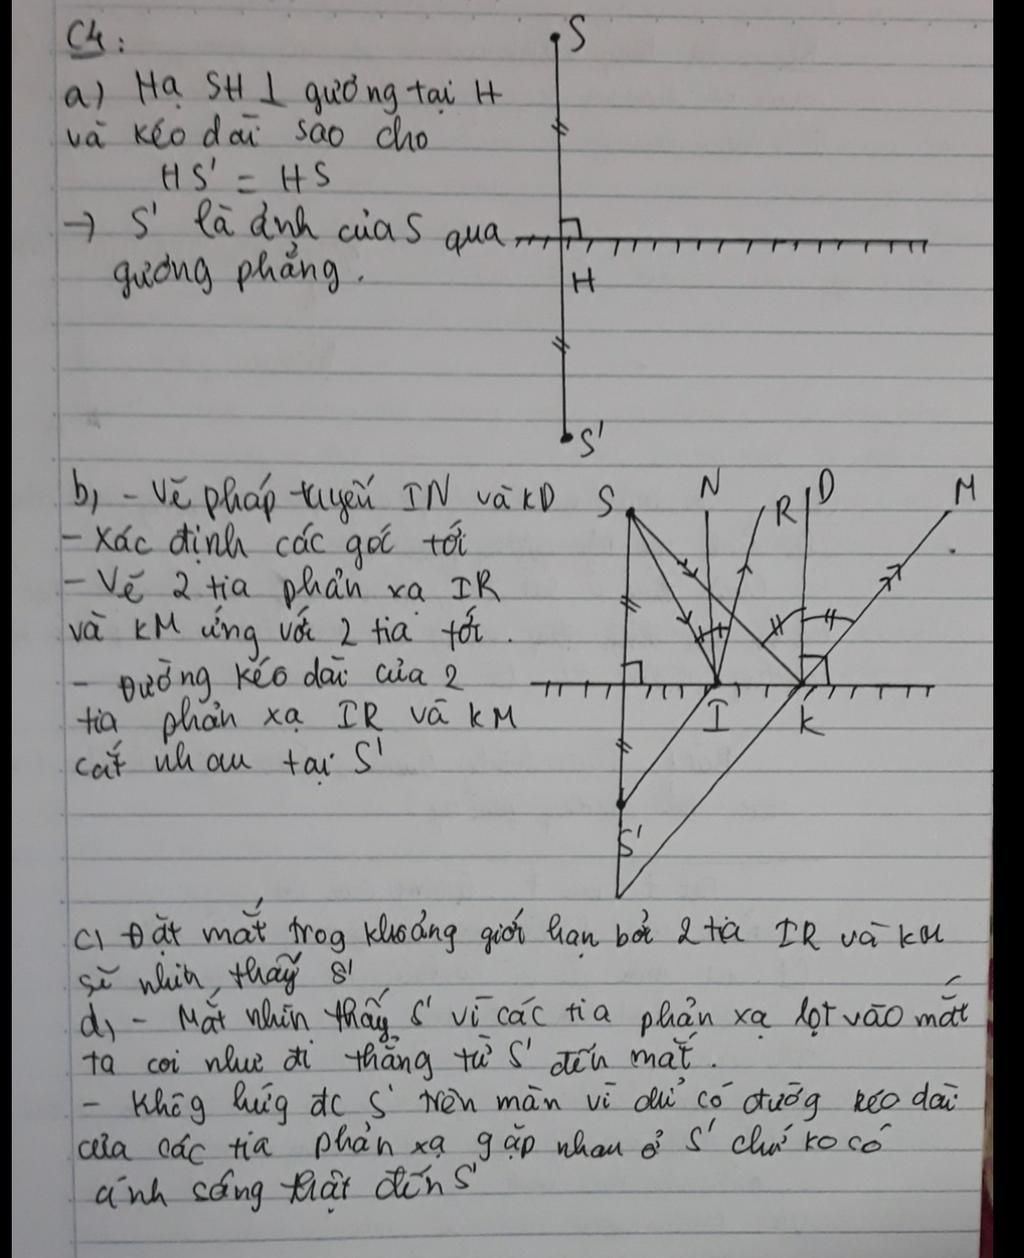 C4:
S
a) Hạ SH ⊥ gương tại H
và kéo dài sao cho
HS' = HS
→ S' là ảnh của S qua
gương phẳng.
H
S'
b) - Vẽ pháp tuyến IN và KD
- Xác định các góc tới
- Vẽ 2 tia phản xạ IR
và KM ứng với 2 tia tới.
- Đường kéo dài của 2
tia phản xạ IR và KM
cắt nhau tại S'
S N R D M
I K
S'
c) Đặt mắt trog khoảng giới hạn bởi 2 tia IR và KM
sẽ nhìn thấy S'
d) - Mắt nhìn thấy S' vì các tia phản xạ lọt vào mắt
ta coi như đi thẳng từ S' đến mắt.
- Khôg hứg đc S' trên màn vì chỉ có đườg kéo dài
của các tia phản xạ gặp nhau ở S' chứ ko có
ánh sáng thật đến S'